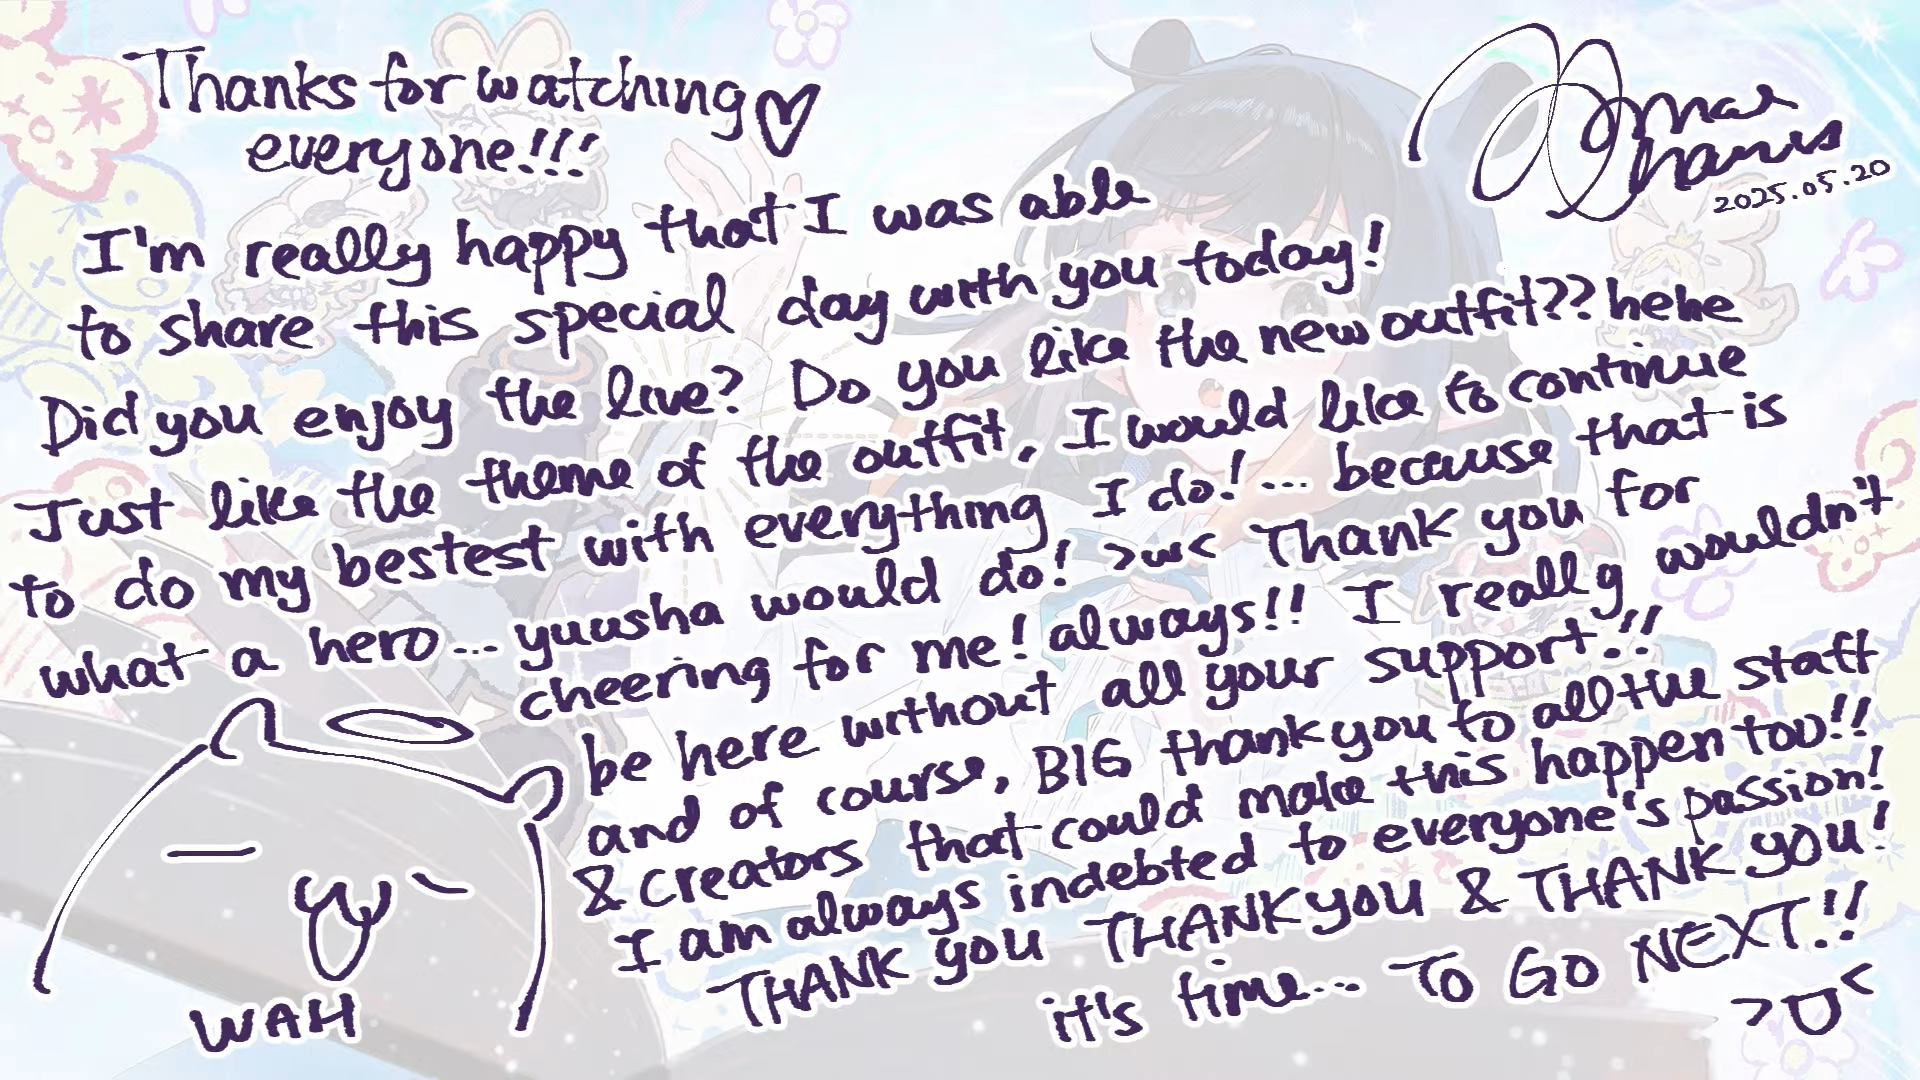 Thanks for watching♡
everyone!!!
2025.05.20
I'm really happy that I was able
to share this special day with you today!
Did you enjoy the live? Do you like the new outfit?? hehe
Just like the theme of the outfit, I would like to continue
to do my bestest with everything I do!... because that is
what a hero... yuusha would do! >w< Thank you for
cheering for me! always!! I really wouldn't
be here without all your support!!
and of course, BIG thank you to all the staff
& creators that could make this happen too!!
I am always indebted to everyone's passion!
THANK you THANK you & THANK you!
it's time... TO GO NEXT!!
>O<
WAH